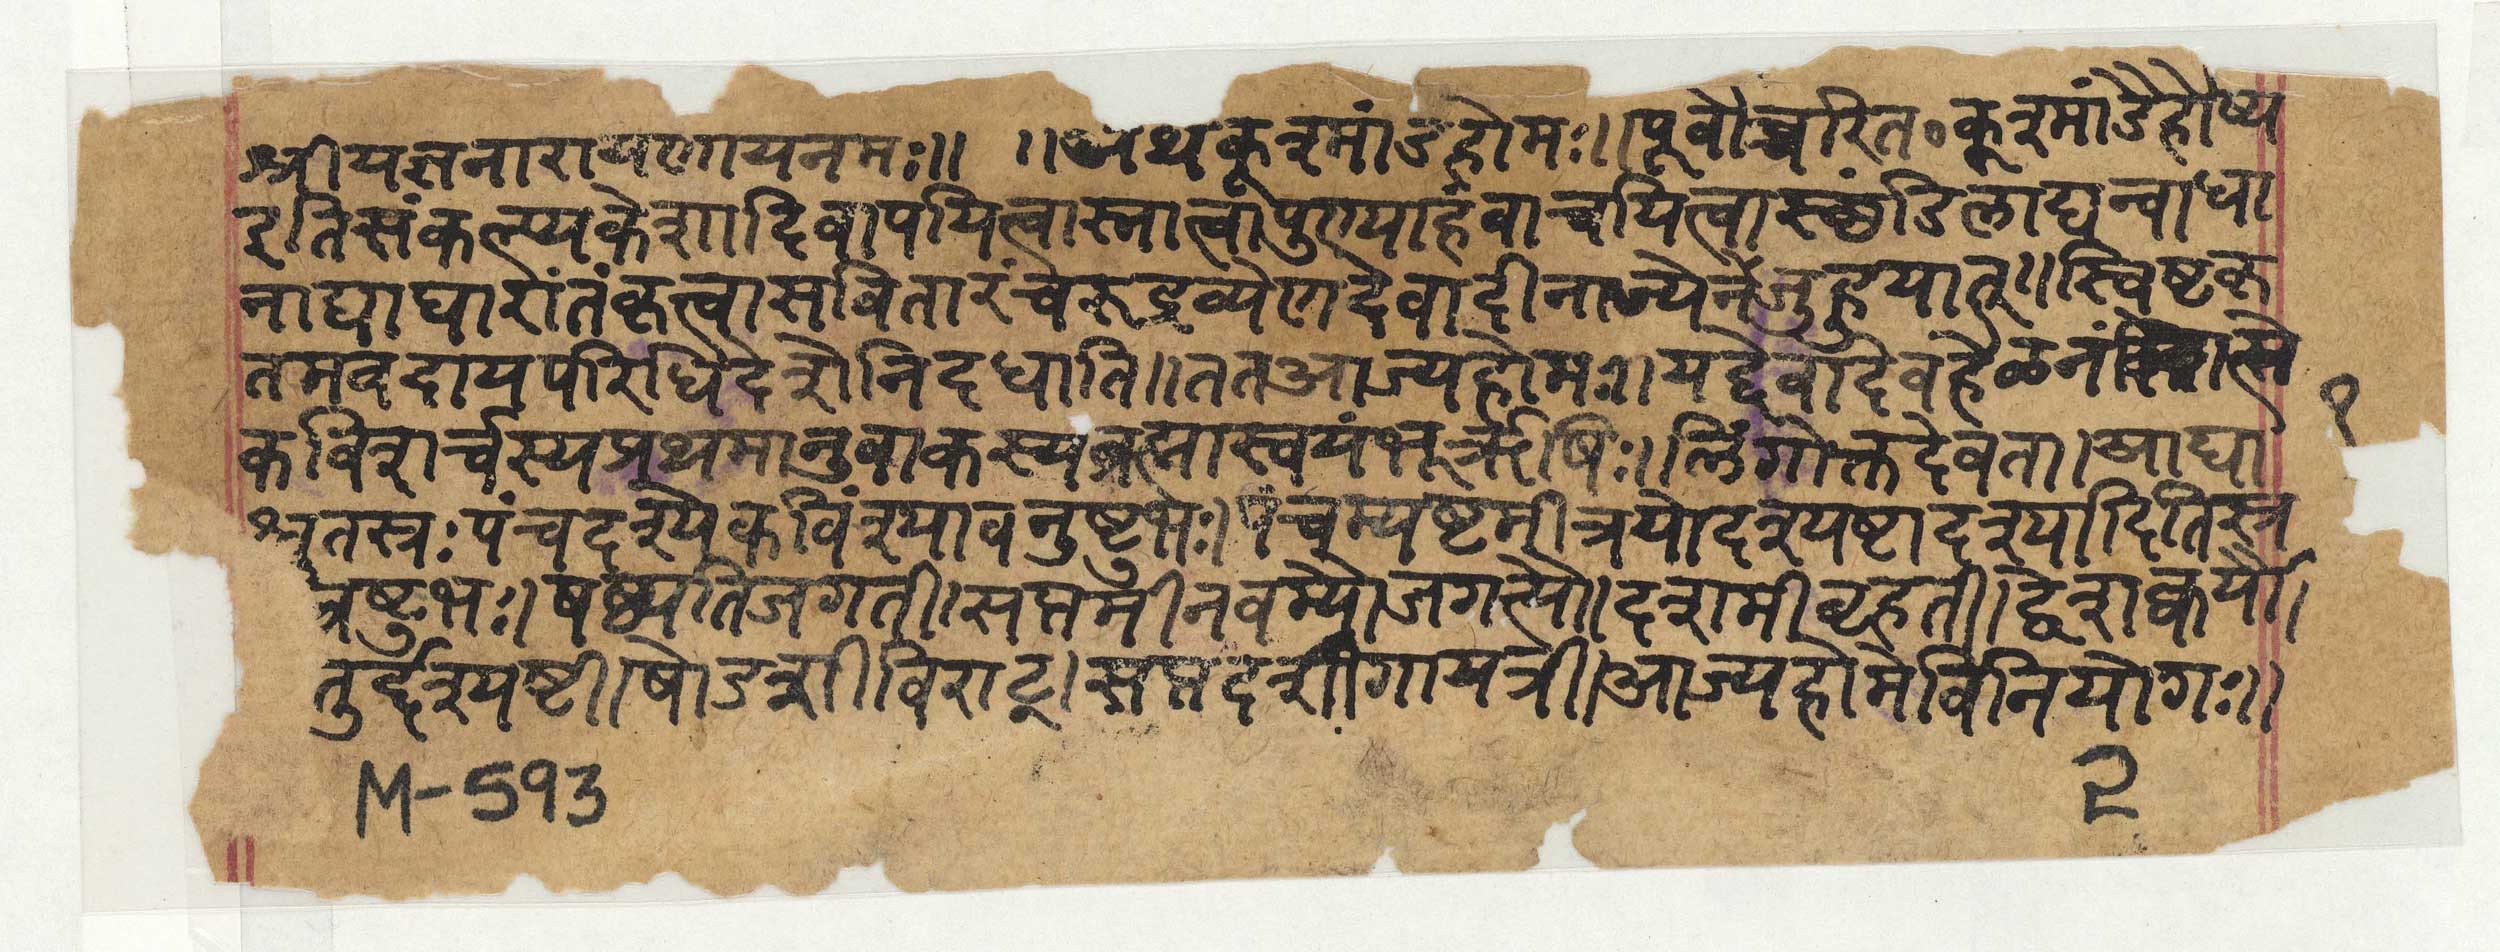 श्रीयज्ञनारायणायनमः॥ ॥अथकूश्मांडहोमः॥पूर्वोच्चरित॰कूश्मांडैर्होष्य
इतिसंकल्प्यकेशादिवापयित्वास्नात्वापुण्याहंवाचयित्वास्थंडिलाद्यन्वाधा
नाद्याघारांतंकृत्वासवितारंचरुद्रव्येणदेवादीनाज्येनजुहुयात्॥स्विष्टकृ
तमवदायपरिधिदेशेनिदधाति॥ततआज्यहोमः॥यद्देवादेवहेळनं
कविंशर्चस्यप्रथमानुवाकस्यब्रह्मास्वयंभूर्ऋषिः॥लिंगोक्तदेवता।आद्या
श्चतस्रःपंचदश्येकविंश्यावनुष्टुभः।पंचम्यष्टमीत्रयोदश्यष्टादश्यादितिस्र
त्रिष्टुभः॥षष्ठ्यतिजगती।सप्तमीनवम्यौजगत्यौ॥दशमीबृहती।द्वेशक्वर्यौ।
तुर्द्दश्यष्टी।षोडशीविराट्।सप्तदशीगायत्री।आज्यहोमेविनियोगः॥
१
M-593
२